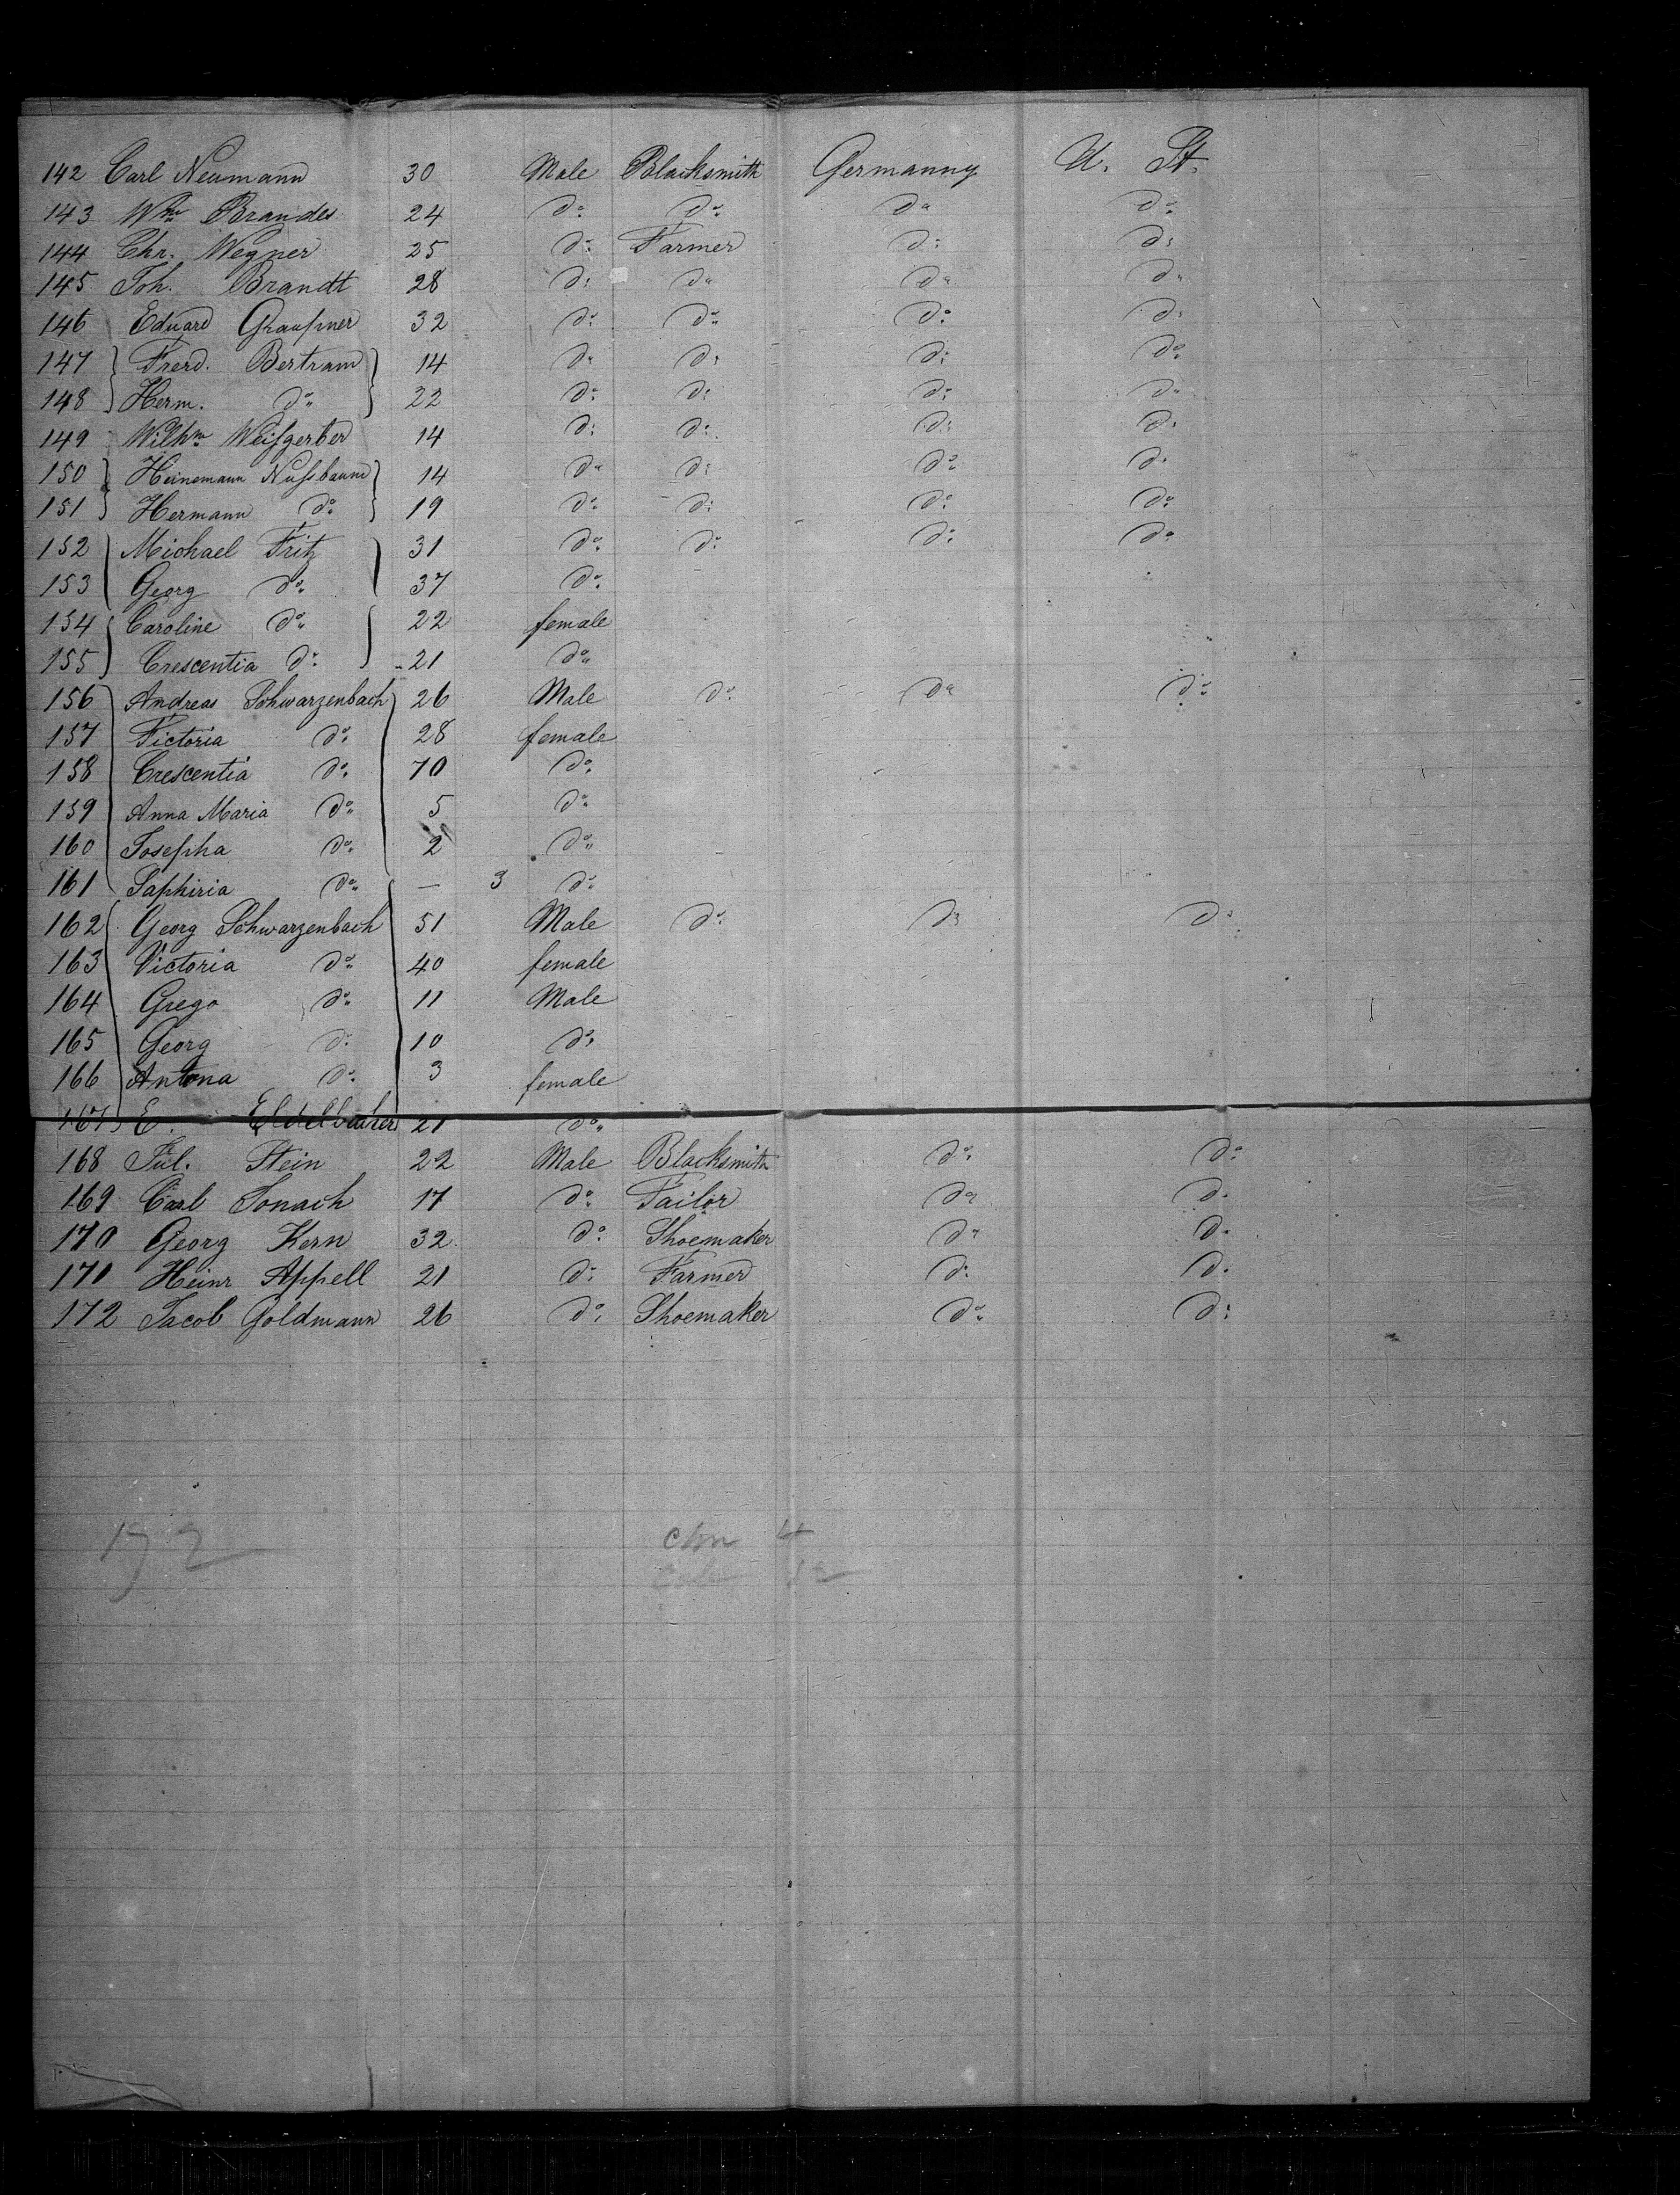 142 Carl Neumann 30 Male Blacksmith Germanny U. St.
143 Wm Brandes 24 do do do do
144 Chr. Wegner 25 do Farmer do do
145 Joh. Brandt 28 do do do do
146 Eduard Graußner 32 do do do do
147 Frerd. Bertram 14 do do do do
148 Herm. do 22 do do do do
149 Wilhm Weißgerber 14 do do do do
150 Heinemann Nußbaum 14 do do do do
151 Hermann do 19 do do do do
152 Michael Fritz 31 do do do do
153 Georg do 37 do
154 Caroline do 22 female
155 Crescentia do 21 do
156 Andreas Schwarzenbach 26 Male do do do
157 Fictoria do 28 female
158 Crescentia do 70 do
159 Anna Maria do 5 do
160 Josepha do 2 do
161 Saphiria do — 3 do
162 Georg Schwarzenbach 51 Male do do do
163 Victoria do 40 female
164 Grego do 11 Male
165 Georg do 10 do
166 Antona do 3 female
167 E. 21 do
168 Jul. Stein 22 Male Blacksmith do do
169 Carl Jonach 17 do Tailor do do
170 Georg Kern 32 do Shoemaker do do
171 Heinr Appell 21 do Farmer do do
172 Jacob Goldmann 26 do Shoemaker do do
172 4